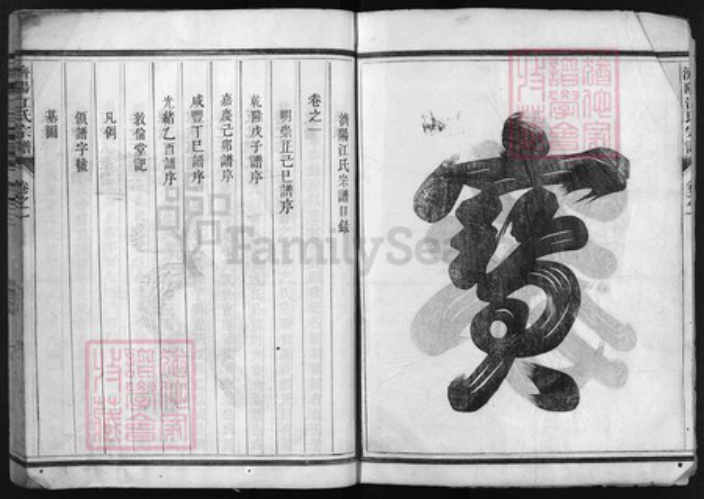 寶
濟陽江氏宗譜目錄
卷之一
明崇正己巳譜序
乾隆戊子譜序
嘉慶己卯譜序
咸豐丁巳譜序
光緒乙酉譜序
敦倫堂記
凡例
領譜字號
墓圖
濟陽江氏宗譜
卷之一
FamilySea